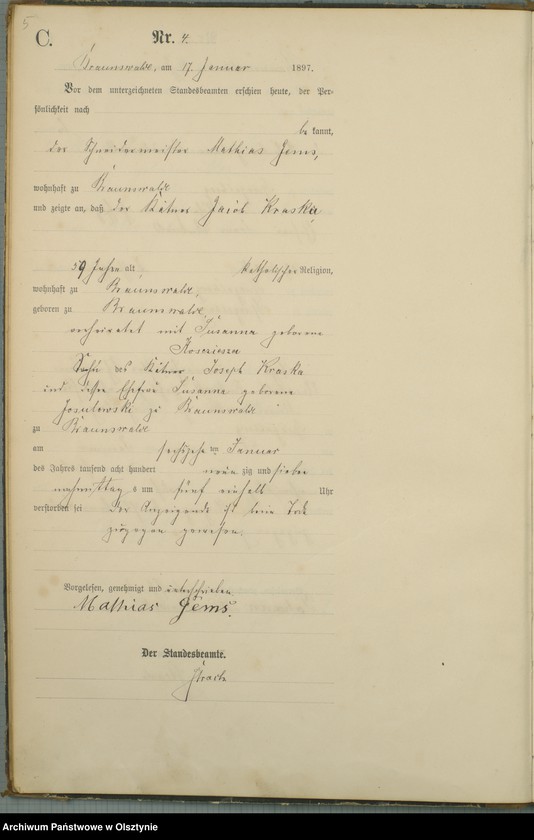 5
C.
Nr. 4.
Braunswalde, am 17 Januar 1897.
Vor dem unterzeichneten Standesbeamten erschien heute, der Per-
sönlichkeit nach
be kannt,
der Schneidermeister Mathias Jems,
wohnhaft zu Braunswalde
und zeigte an, daß der Kätner Jacob Kraska,
59 Jahre alt, katholischer Religion,
wohnhaft zu Braunswalde,
geboren zu Braunswalde,
verheiratet mit Susanna geborene
Koscziesza
Sohn des Kätner Joseph Kraska
und dessen Ehefrau Susanna geborene
zu Braunswalde
zu Braunswalde
am sechszehnten Januar
des Jahres tausend acht hundert neun zig und sieben
nachmittags um fünf einhalb Uhr
verstorben sei Der Anzeigende ist beim Tode
zugegen gewesen.
Vorgelesen, genehmigt und unterschrieben
Mathias Jems.
Der Standesbeamte.
Archiwum Państwowe w Olsztynie